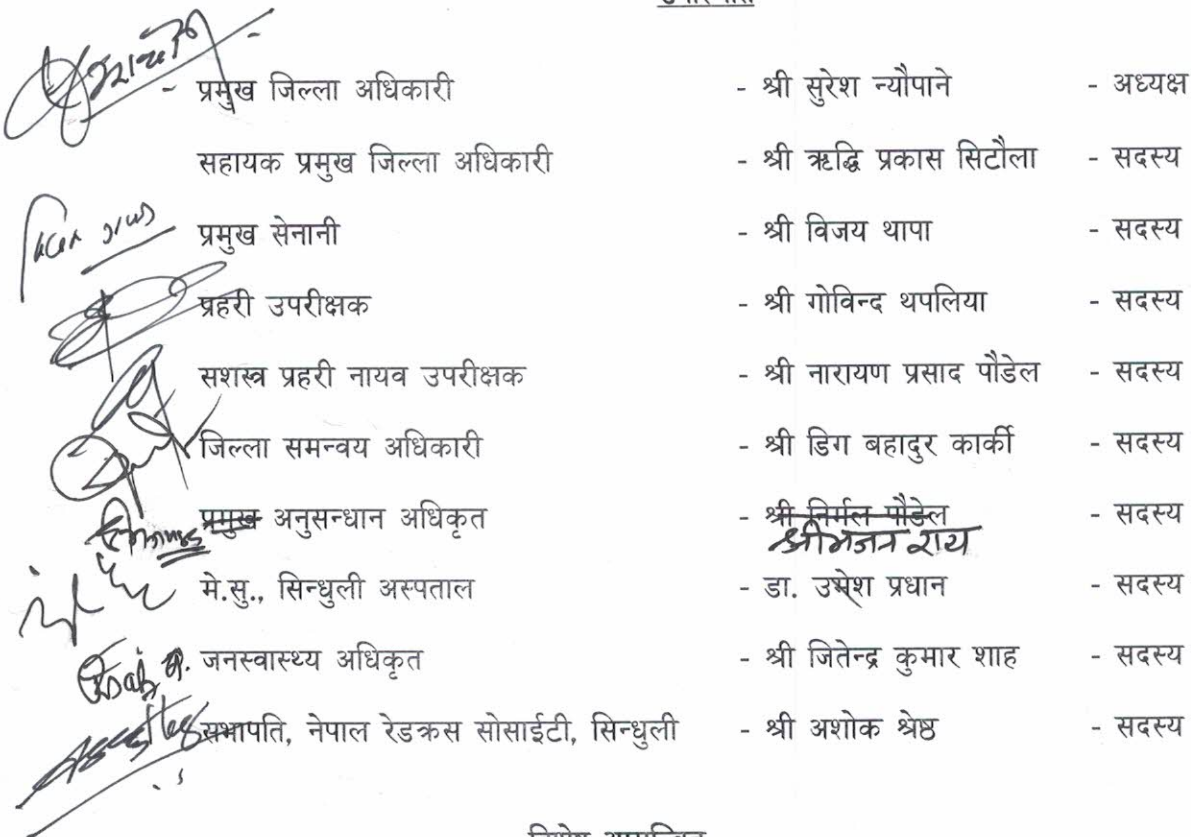 प्रमुख जिल्ला अधिकारी - श्री सुरेश न्यौपाने - अध्यक्ष
सहायक प्रमुख जिल्ला अधिकारी - श्री ऋद्धि प्रकास सिटौला - सदस्य
प्रमुख सेनानी - श्री विजय थापा - सदस्य
प्रहरी उपरीक्षक - श्री गोविन्द थपलिया - सदस्य
सशस्त्र प्रहरी नायव उपरीक्षक - श्री नारायण प्रसाद पौडेल - सदस्य
जिल्ला समन्वय अधिकारी - श्री डिग बहादुर कार्की - सदस्य
प्रमुख अनुसन्धान अधिकृत - श्री निर्मल पौडेल - सदस्य
श्री भजन राय
मे.सु., सिन्धुली अस्पताल - डा. उमेश प्रधान - सदस्य
जनस्वास्थ्य अधिकृत - श्री जितेन्द्र कुमार शाह - सदस्य
सभापति, नेपाल रेडक्रस सोसाईटी, सिन्धुली - श्री अशोक श्रेष्ठ - सदस्य